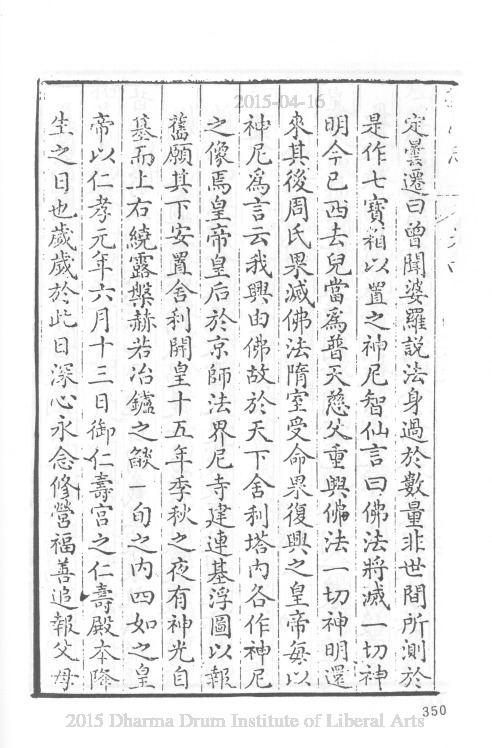 定曇遷曰曾聞婆羅說法身過於數量非世間所測於
是作七寶箱以置之神尼智仙言曰佛法將滅一切神
明今已西去兒當爲普天慈父重興佛法一切神明還
來其後周氏果滅佛法隋室受命果復興之皇帝每以
神尼爲言云我興由佛故於天下舍利塔内各作神尼
之像焉皇帝皇后於京師法界尼寺建連基浮圖以報
舊願其下安置舍利開皇十五年季秋之夜有神光自
基而上右繞露槃赫若冶鑪之燄一旬之内四如之皇
帝以仁孝元年六月十三日御仁壽宮之仁壽殿本降
生之日也歲歲於此日深心永念修營福善追報父母
350
2015-04-16
2015 Dharma Drum Institute of Liberal Arts